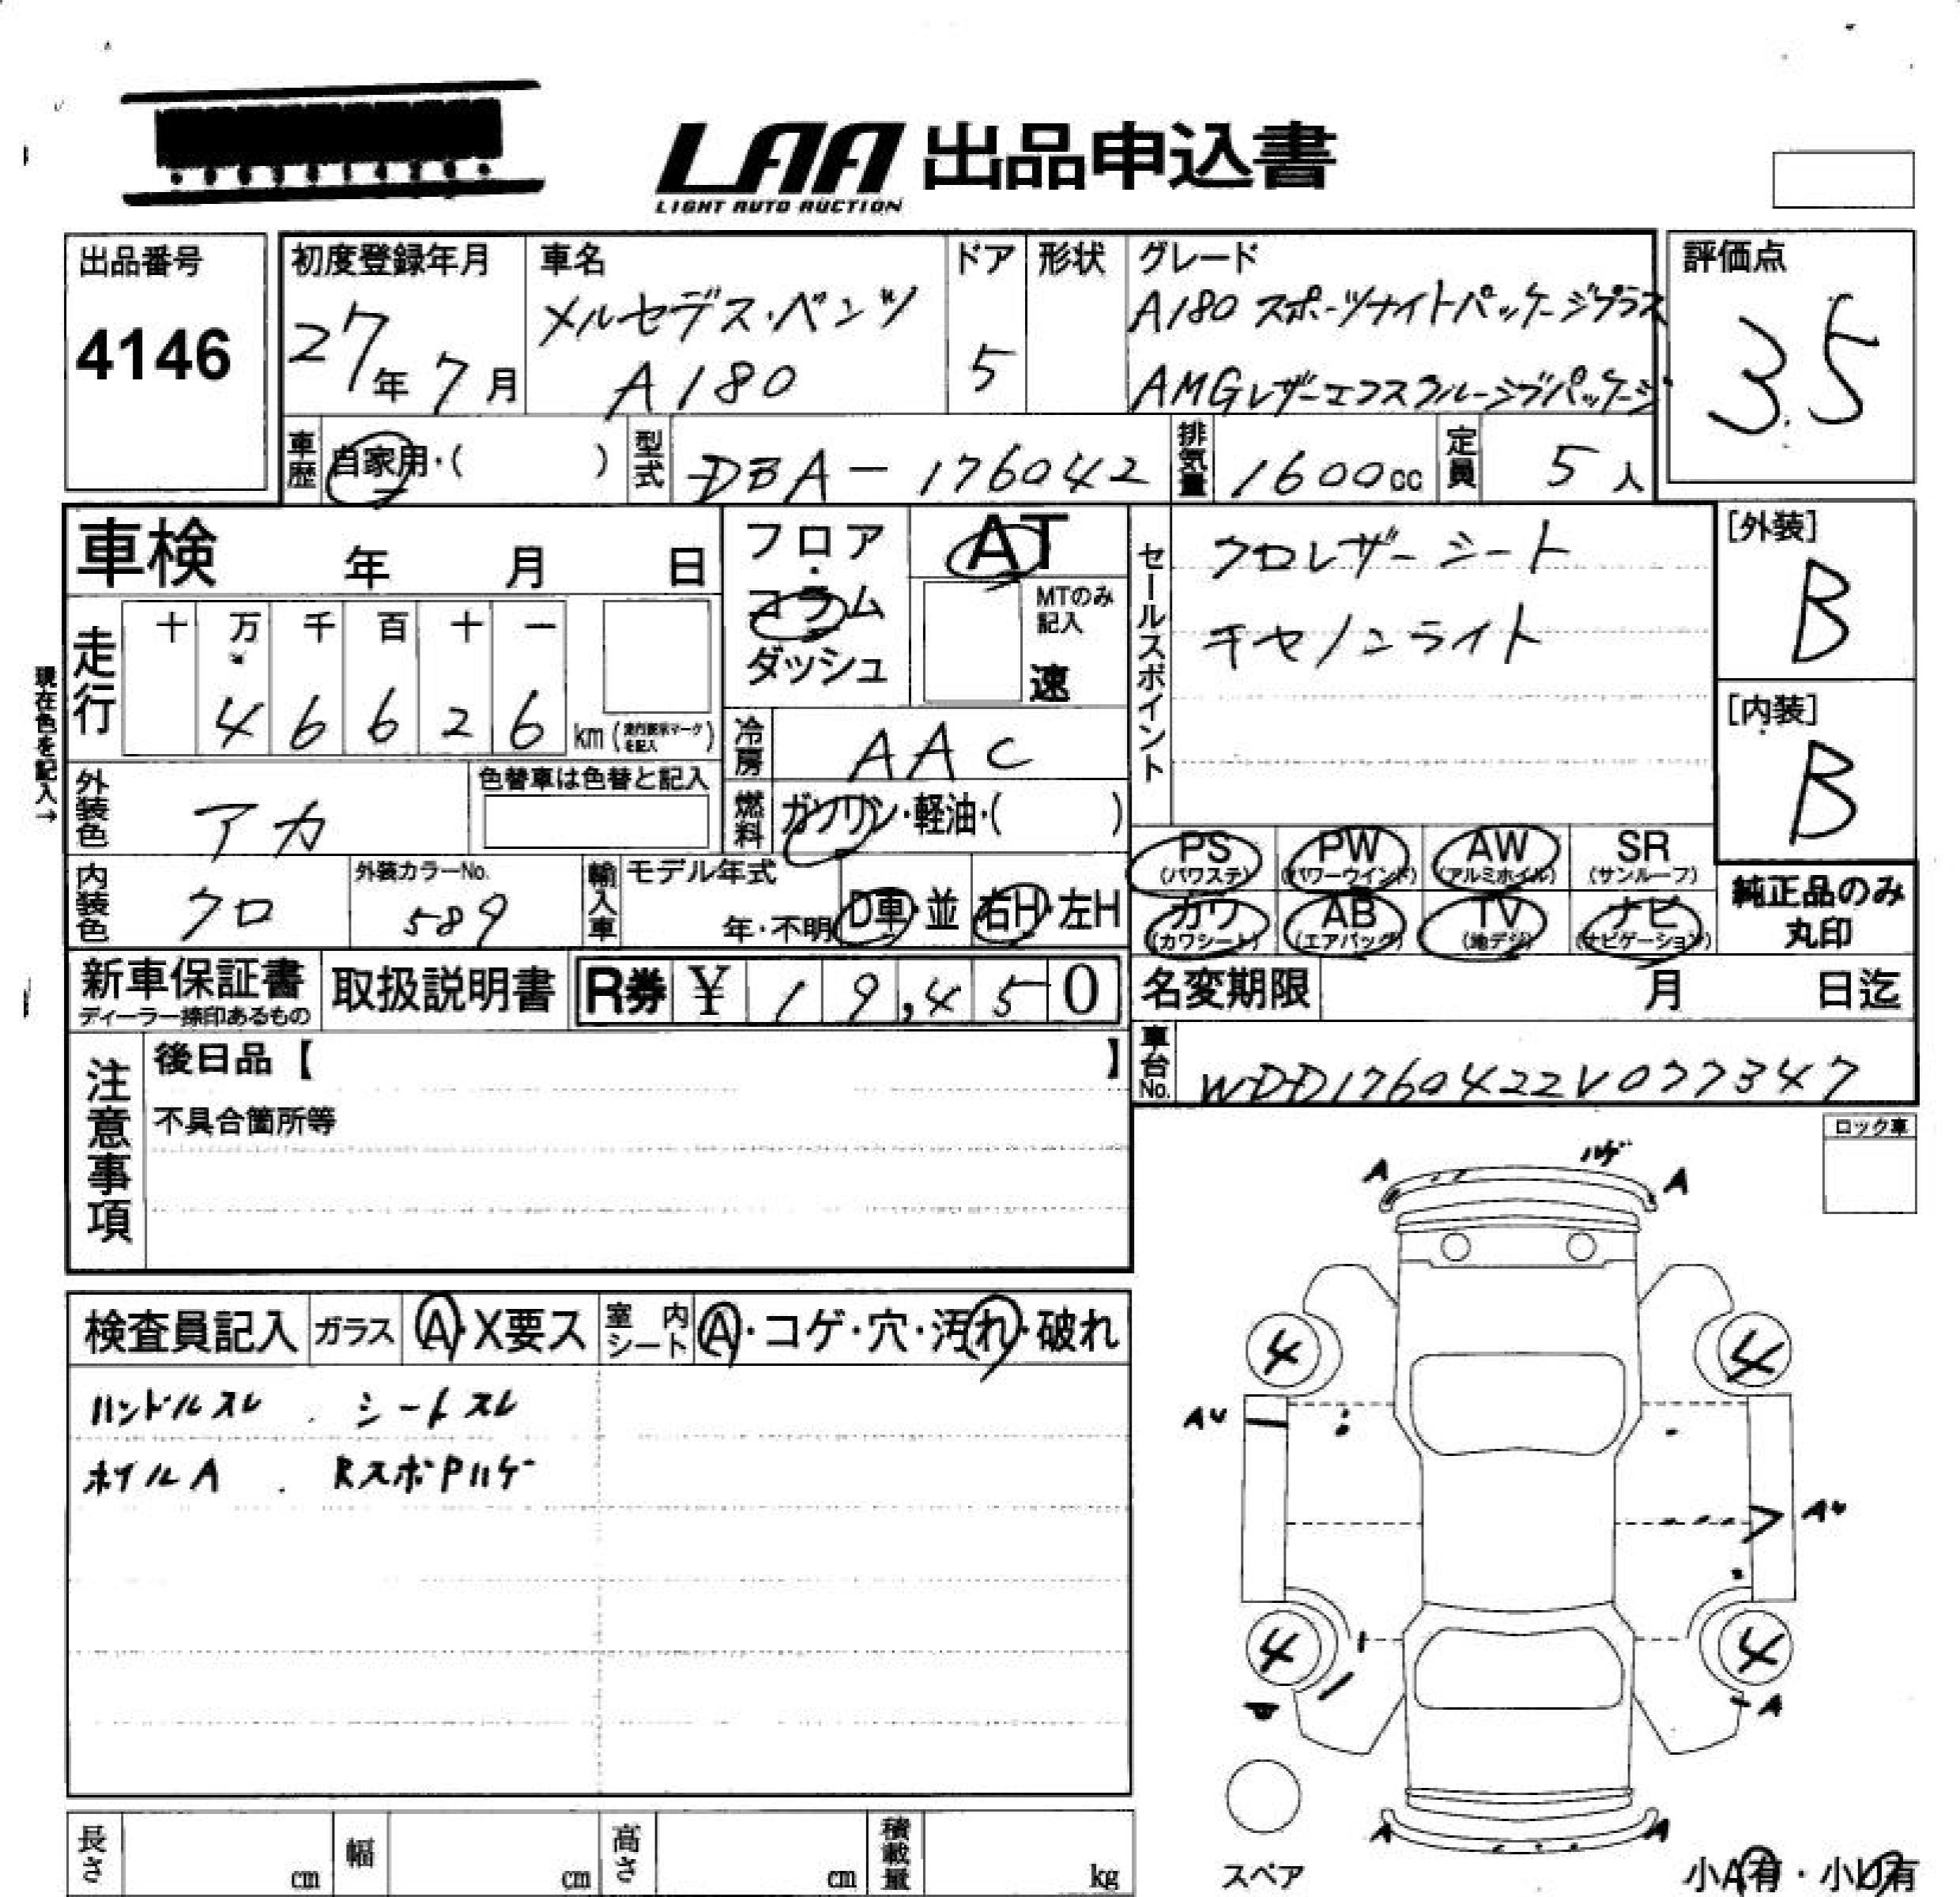 LAA 出品申込書
LIGHT AUTO AUCTION
出品番号
4146
初度登録年月
27年 7月
車名
メルセデス・ベンツ
A180
ドア
5
形状
グレード
A180 スポーツナイトパッケージプラス
AMGレザーエクスクルーシブパッケージ
評価点
3.5
車歴
自家用・( )
型式
DBA-176042
排気量
1600cc
定員
5人
車検 年 月 日
フロア・コラム
ダッシュ
AT
MTのみ記入
速
セールスポイント
クロレザーシート
キセノンライト
[外装]
B
[内装]
B
現在色を記入→
走行
十 万 千 百 十 一
4 6 6 2 6 km
冷房
AAC
燃料
ガソリン・軽油・( )
外装色
アカ
色替車は色替と記入
内装色
クロ
外装カラーNo.
589
輸入車
モデル年式
年・不明
D車・並
右H・左H
PS (パワステ)
PW (パワーウインド)
AW (アルミホイル)
SR (サンルーフ)
カワ (カワシート)
AB (エアバッグ)
TV (地デジ)
ナビ (ナビゲーション)
純正品のみ
丸印
新車保証書
ディーラー捺印あるもの
取扱説明書
R券 ¥ 19,450
名変期限 月 日迄
車台No.
WDD1760422V077347
注意事項
後日品【 】
不具合箇所等
ロック車
検査員記入
ガラス
A・X要ス
室内シート
A・コゲ・穴・汚れ・破れ
ハンドルスレ . シートスレ
ホイルA . RスポPハゲ
A ハゲ A
4 4
AU
AU
4 4
A
A A
スペア
小A有・小U有
長さ cm
幅 cm
高さ cm
積載量 kg